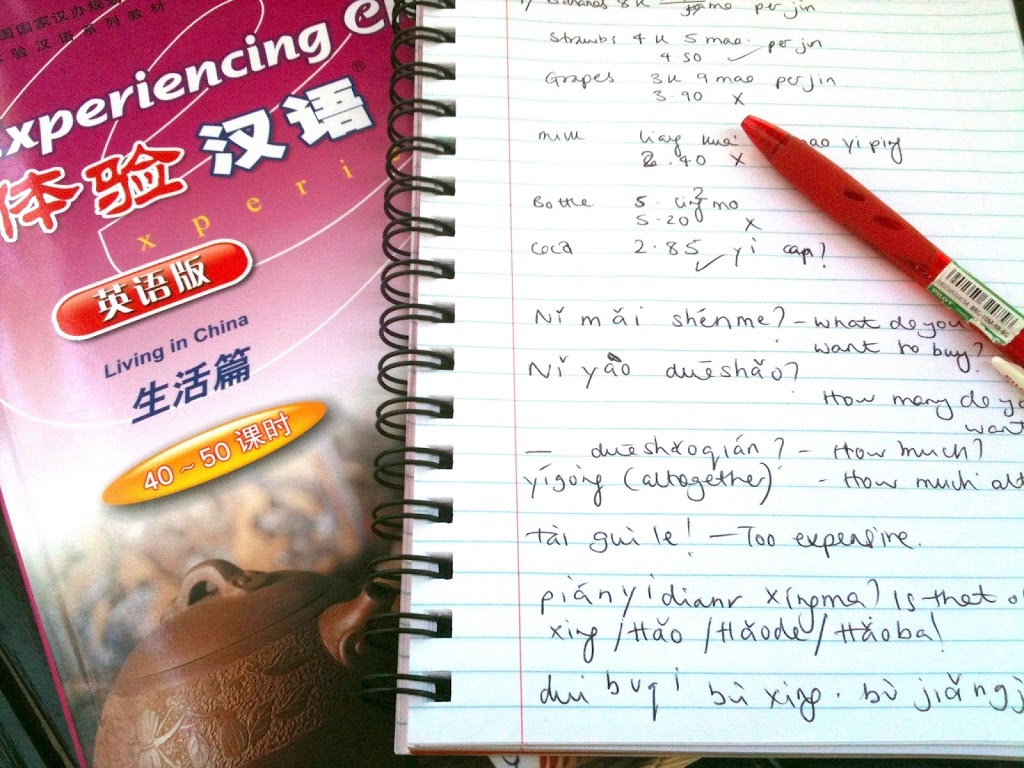 国国家汉办规划
验汉语系列教材
Experiencing C
体验汉语®
x p e r i
英语版
Living in China
生活篇
40~50课时
Bananas 8k mo per jin
Strawbs 4k 5 mao per jin
4.50 ✓
Grapes 3k 9 mao per jin
3.90 x
milk liang kuai mao yi ping
2.40 x
Bottle 5. ling mo
5.20 x
Coca 2.85 ✓ yi cap?
Nǐ mǎi shénme? - what do you
want to buy?
Nǐ yào duēshǎo?
How many do yo
want
— duēshǎoqián? - How much?
yígòng (altogether) - How much alt
tài guì le! - Too expensive.
piányidianr xíngma? Is that o
xing / Hǎo / Hǎode / Hǎoba!
dui buqi bù xing. bù jiǎngj